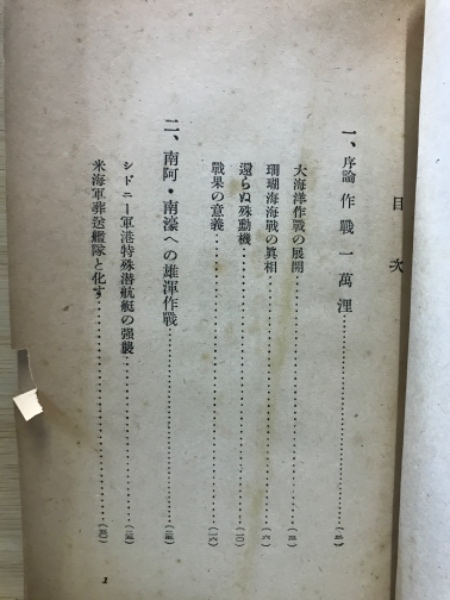 目次
一、序論 作戰一萬浬
大海洋作戰の展開
珊瑚海海戰の眞相
還らぬ殊勳機 (一〇)
戰果の意義
二、南阿・南濠への雄渾作戰
シドニー軍港特殊潜航艇の强襲
米海軍葬送艦隊と化す
1